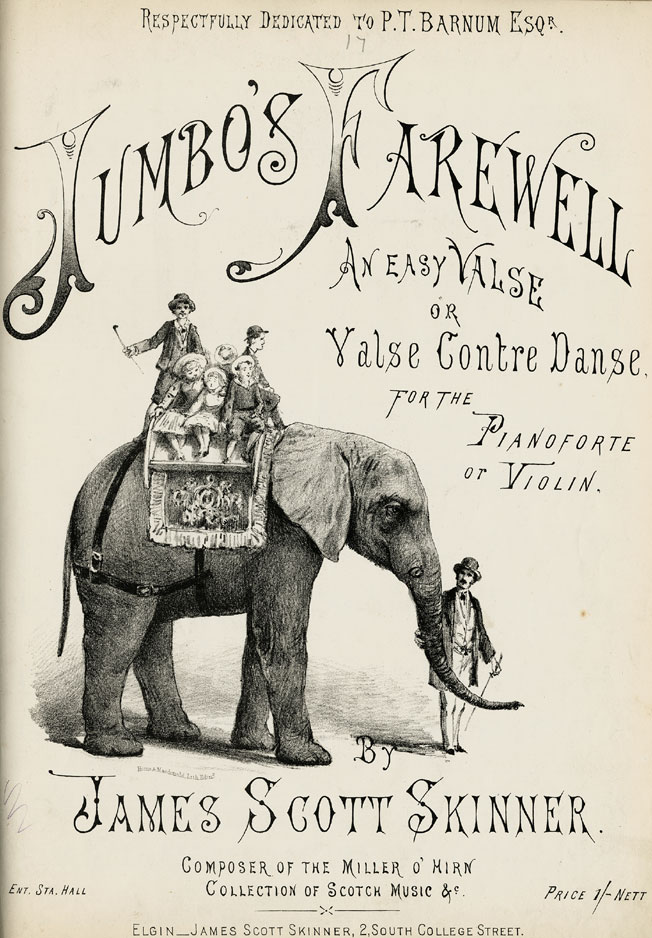 RESPECTFULLY DEDICATED TO P.T. BARNUM ESQR.
17
JUMBO'S FAREWELL
AN EASY VALSE
OR
Valse Contre Danse,
FOR THE
PIANOFORTE
or VIOLIN.
By
JAMES SCOTT SKINNER.
COMPOSER OF THE MILLER O' HIRN
COLLECTION OF SCOTCH MUSIC &c.
ENT. STA. HALL
PRICE 1/- NETT
ELGIN _ JAMES SCOTT SKINNER, 2, SOUTH COLLEGE STREET.